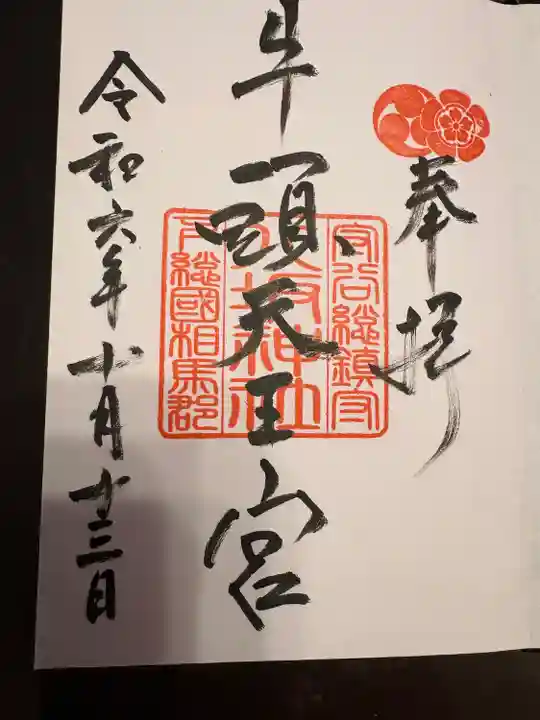 奉拝
牛頭天王宮
守谷総鎮守
八坂神社
下総國相馬郡
令和六年十月十三日